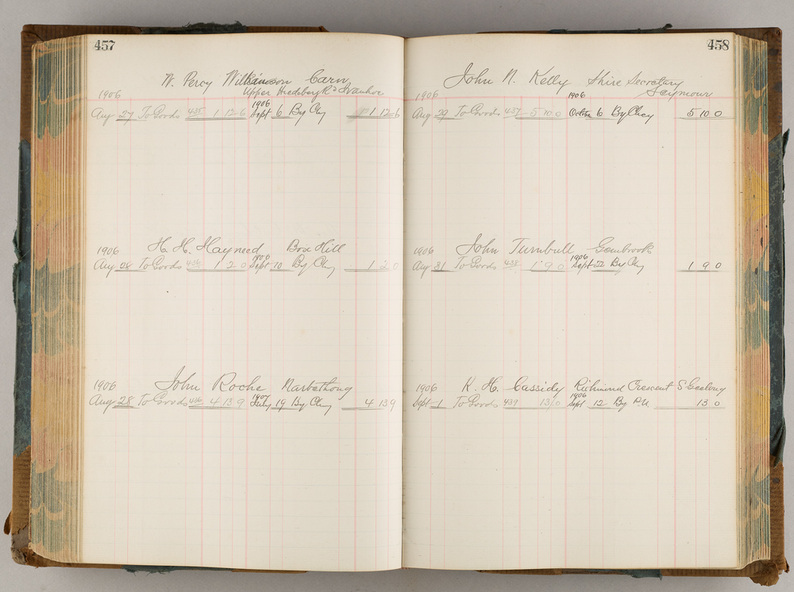 457
W. Percy Wilkinson Carn
Upper Heidelberg Rd Ivanhoe
1906 1906
Aug 27 To Goods 435 1 12 6 Sept 6 By Chq 1 12 6
1906 H. H. Hayned Box Hill
Aug To Goods 1 2 0 Sept 10 By Chq 1 2 0
1906 John Roche Narbethong
1907
Aug 28 To Goods 4 13 9 July 19 By Chq 4 13 9
458
John N. Kelly Shire Secretary
Seymour
1906 1906
Aug 29 To Goods 437 5 10 0 6 By Chq 5 10 0
1906 John Turnbull Gembrook
1906
Aug 31 To Goods 438 1 9 0 Sept 22 By Chq 1 9 0
1906 K. H. Cassidy Richmond Crescent S. Geelong
1906
Sept 1 To Goods 439 13 0 Sept 12 By P.N 13 0